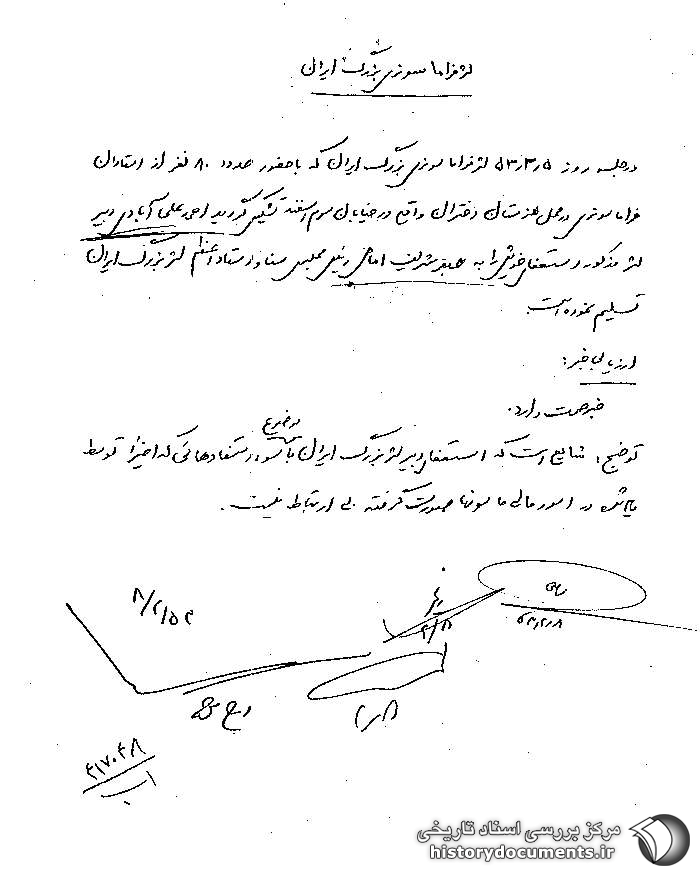 لژ فراماسونری بزرگ ایران
در جلسه روز ۵۳٫۲٫۵ لژ فراماسونری بزرگ ایران که با حضور حدود ۸۰ نفر از استادان
فراماسونری در محل هنرستان دختران واقع در خیابان سوم اسفند تشکیل گردید احمد علی آبادی دبیر
لژ مذکور استعفای خویش را به جعفر شریف امامی رئیس مجلس سنا و استاد اعظم لژ بزرگ ایران
تسلیم نموده است.
ارزیابی خبر:
خبر صحت دارد.
موضوع
توضیح: شایع است که استعفای دبیر لژ بزرگ ایران با سوء استفادهائی که اخیراً توسط
در امور مالی ماسونها صورت گرفته بی ارتباط نیست.
۸/۲/۵۳
۲/۸
۵۳٫۲٫۸
۴۱۷۰۴۸
اب
مرکز بررسی اسناد تاریخی
historydocuments.ir